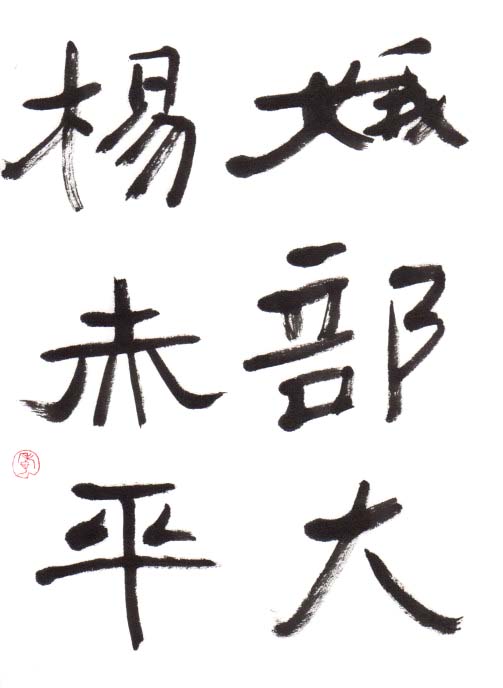 娥部大
楊赤平